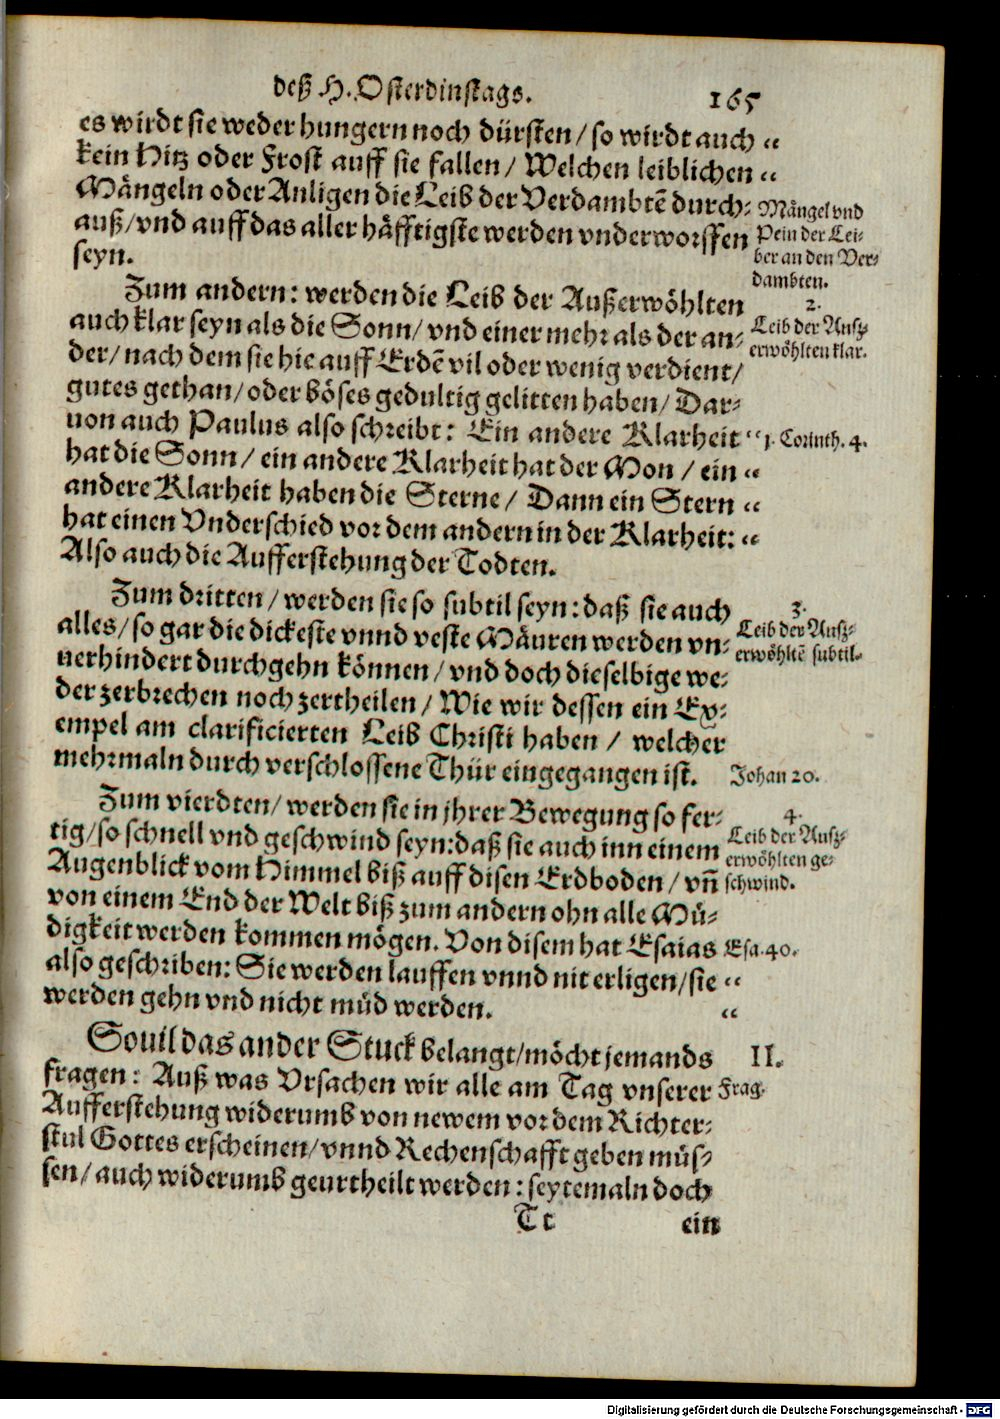 deß H. Osterdinstags. 165
es wirdt sie weder hungern noch dürsten/ so wirdt auch “
kein Hitz oder Frost auff sie fallen/ Welchen leiblichen “
Mängeln oder Anligen die Leib der Verdambtẽ durch⸗
auß/ vnd auff das aller häfftigste werden vnderworffen
seyn.
Mängel vnd
Pein der Lei⸗
ber an den Ver⸗
dambten.
Zum andern: werden die Leib der Außerwöhlten
auch klar seyn als die Sonn/ vnd einer mehr als der an⸗
der/ nach dem sie hie auff Erdẽ vil oder wenig verdient/
gutes gethan/ oder böses gedultig gelitten haben/ Dar⸗
uon auch Paulus also schreibt: Ein andere Klarheit “
hat die Sonn/ ein andere Klarheit hat der Mon/ ein “
andere Klarheit haben die Sterne/ Dann ein Stern “
hat einen Vnderschied vor dem andern in der Klarheit: “
Also auch die Aufferstehung der Todten.
2.
Leib der Auß⸗
erwöhlten klar.
1. Corinth. 4.
Zum dritten/ werden sie so subtil seyn: daß sie auch
alles/ so gar die dickeste vnnd veste Mäuren werden vn⸗
uerhindert durchgehn können/ vnd doch dieselbige we⸗
der zerbrechen noch zertheilen/ Wie wir dessen ein Ex⸗
empel am clarificierten Leib Christi haben/ welcher
mehrmaln durch verschlossene Thür eingegangen ist.
3.
Leib der Auß⸗
erwöhltẽ subtil.
Johan 20.
Zum vierdten/ werden sie in jhrer Bewegung so fer⸗
tig/ so schnell vnd geschwind seyn: daß sie auch inn einem
Augenblick vom Himmel biß auff disen Erdboden/ vñ
von einem End der Welt biß zum andern ohn alle Mü⸗
digkeit werden kommen mögen. Von disem hat Esaias
also geschriben: Sie werden lauffen vnnd nit erligen/ sie “
werden gehn vnd nicht müd werden. “
4.
Leib der Auß⸗
erwöhlten ge⸗
schwind.
Esa. 40.
Souil das ander Stuck belangt/ möcht jemands
fragen: Auß was Vrsachen wir alle am Tag vnserer
Aufferstehung widerumb von newem vor dem Richter⸗
stul Gottes erscheinen/ vnnd Rechenschafft geben müs⸗
sen/ auch widerumb geurtheilt werden: seytemaln doch
II.
Frag.
Tt ein
Digitalisierung gefördert durch die Deutsche Forschungsgemeinschaft - DFG